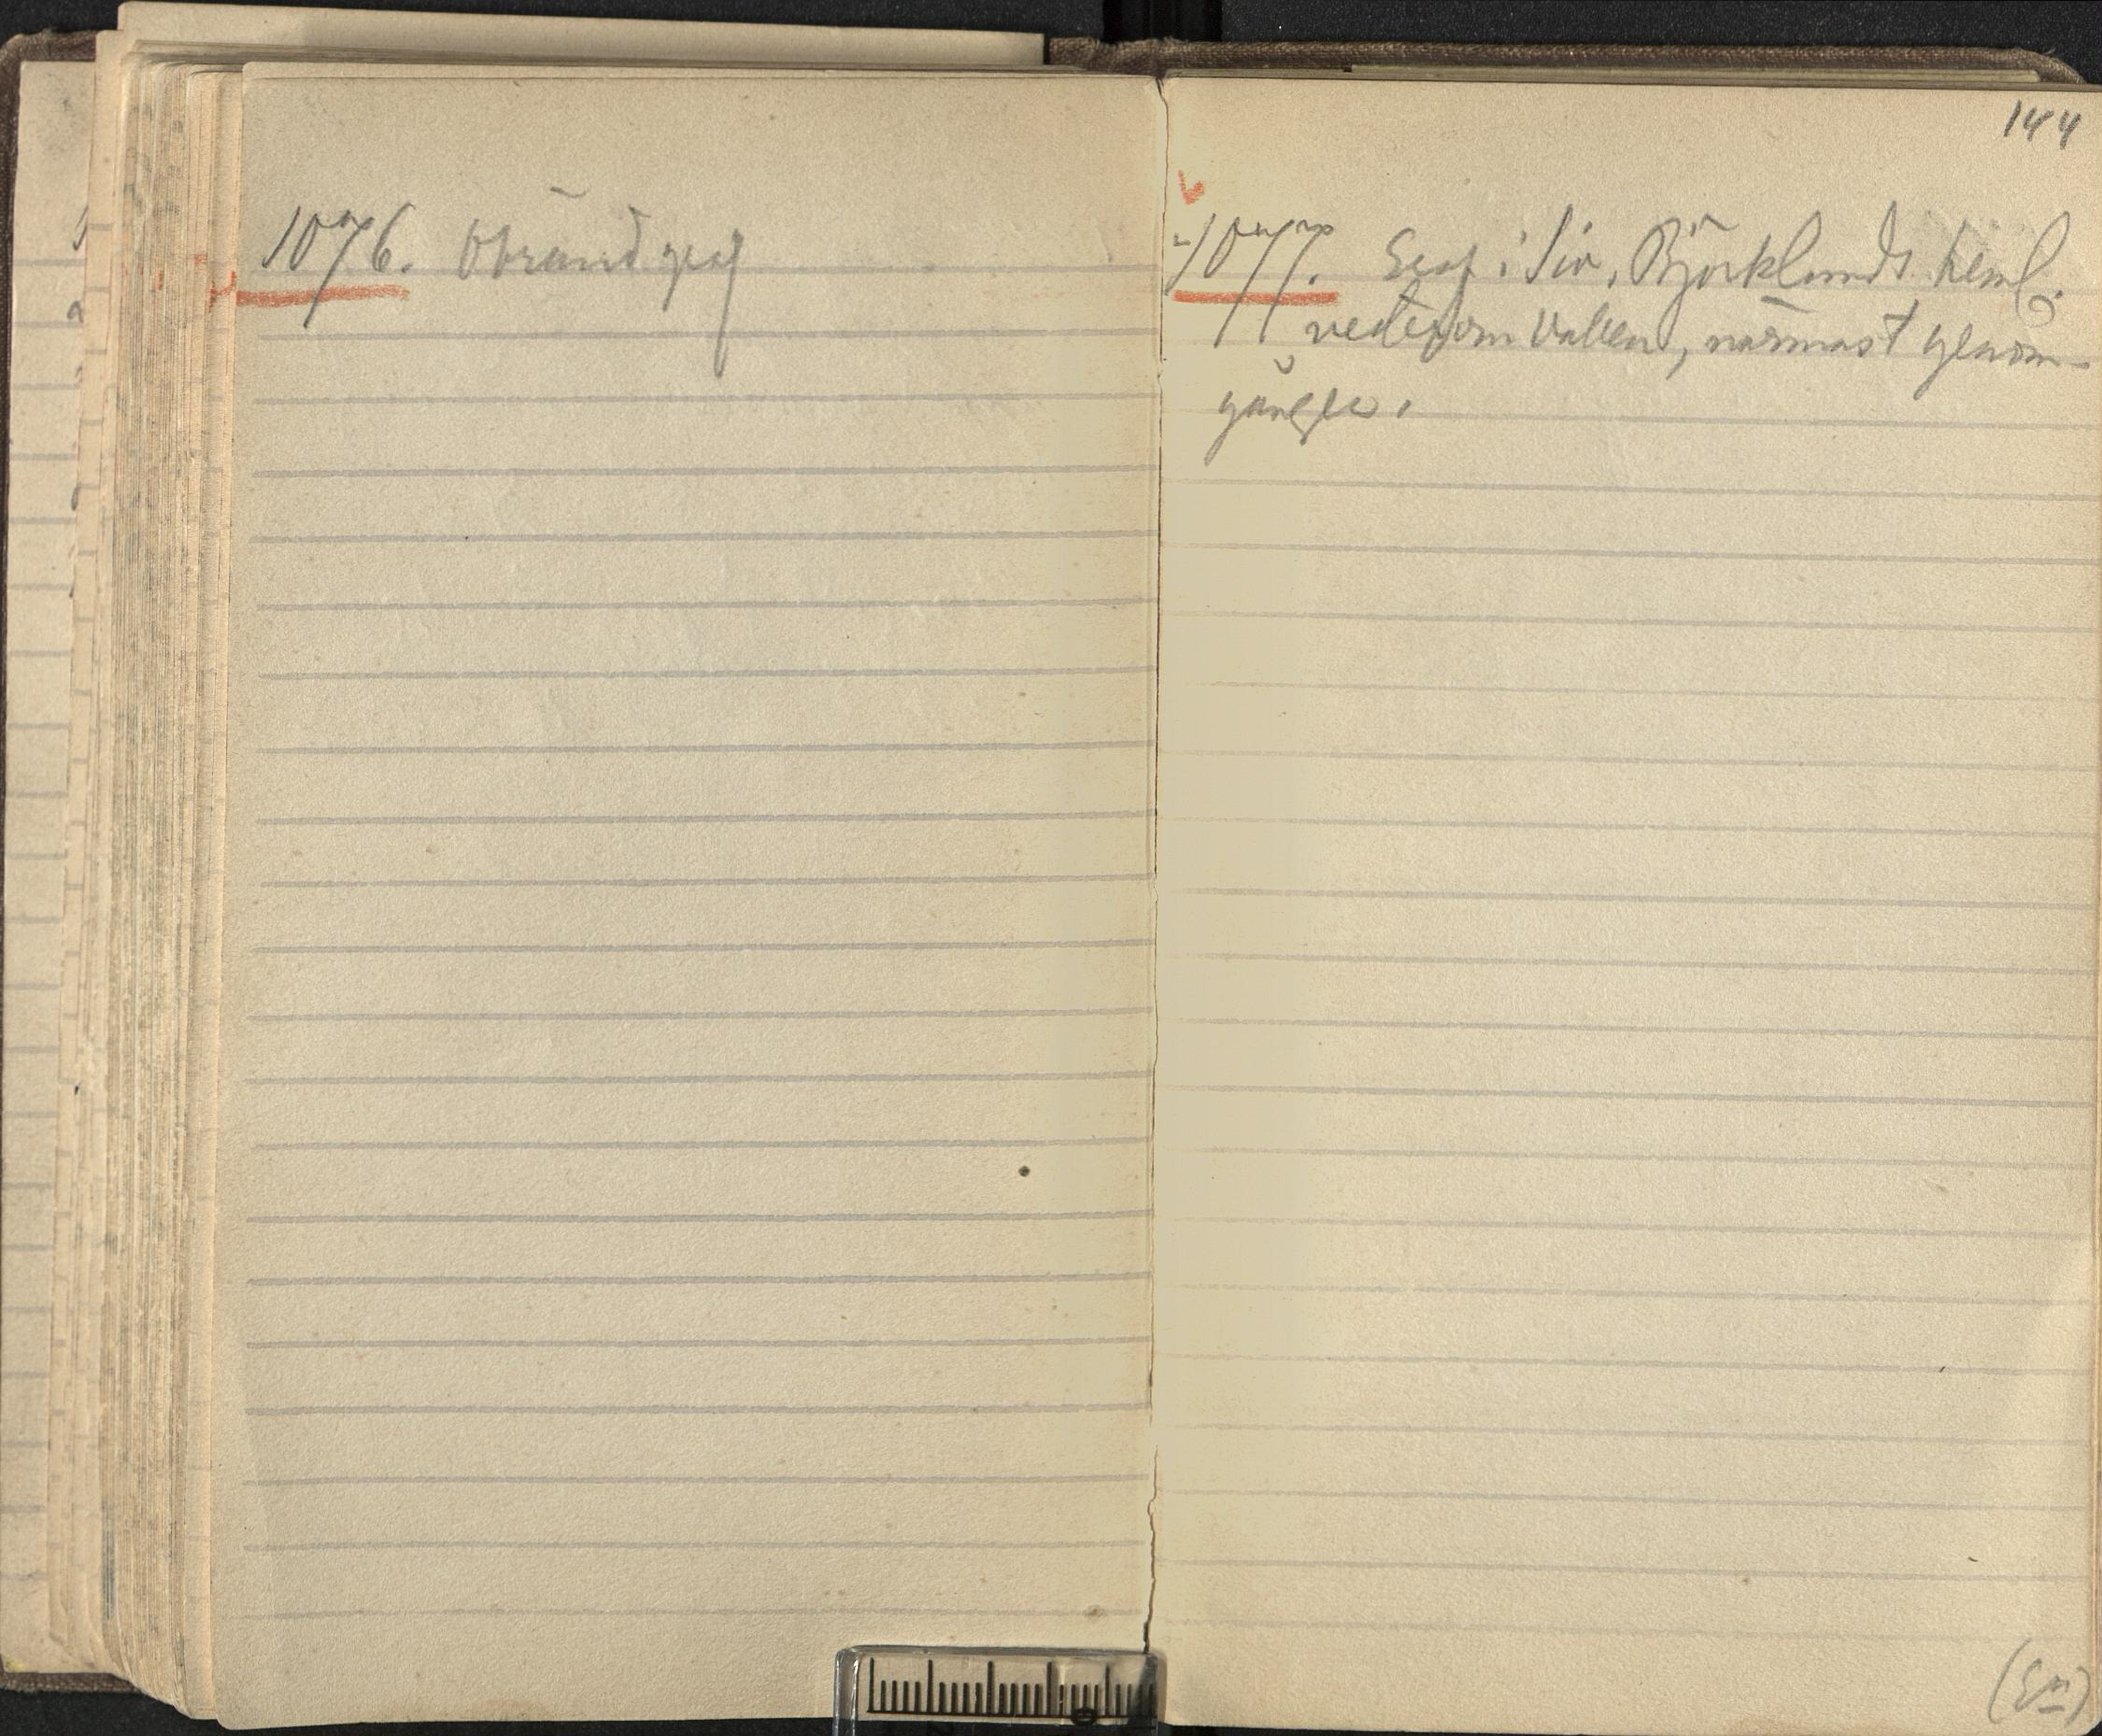 1076. Obränd graf
144
1077. Graf i Björklunds heml.
vester om vallen, närmast genom-
gången.